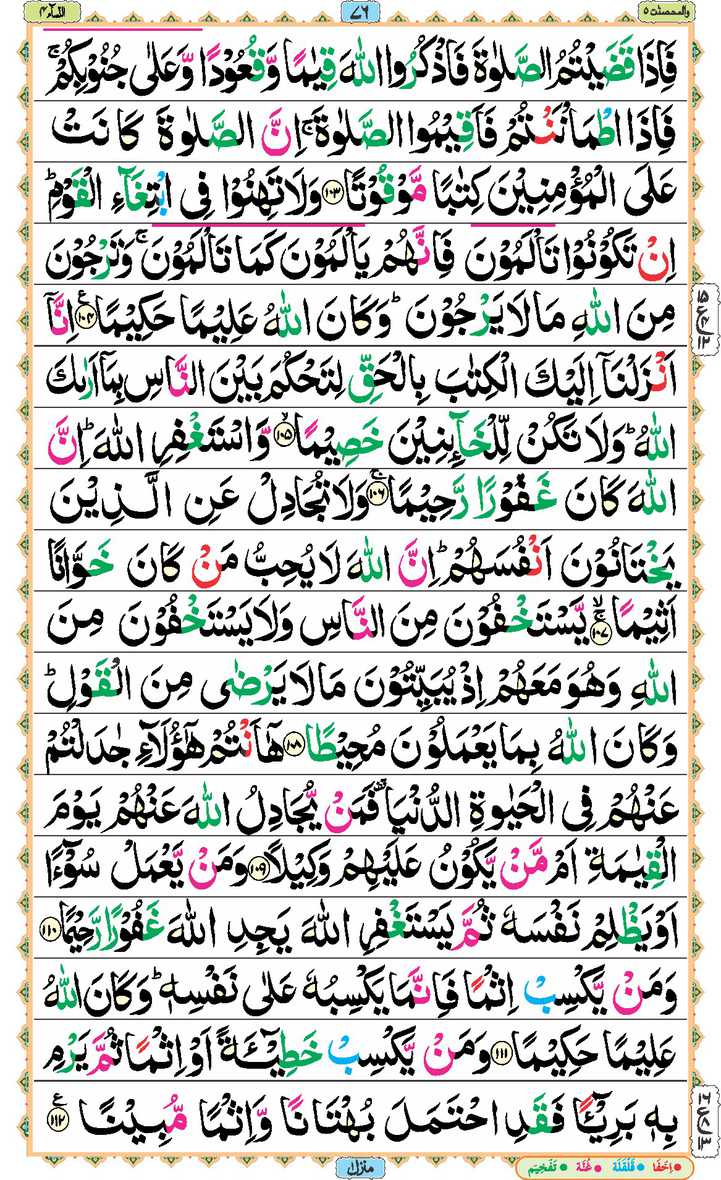 والمحصنت ۵ ۷٦ النساء ۴
فَاِذَا قَضَيْتُمُ الصَّلٰوةَ فَاذْكُرُوا اللّٰهَ قِيٰمًا وَّقُعُوْدًا وَّعَلٰى جُنُوْبِكُمْ ۚ
فَاِذَا اطْمَاْنَنْتُمْ فَاَقِيْمُوا الصَّلٰوةَ ۚ اِنَّ الصَّلٰوةَ كَانَتْ
عَلَى الْمُؤْمِنِيْنَ كِتٰبًا مَّوْقُوْتًا ۝۱۰۳ وَلَا تَهِنُوْا فِى ابْتِغَآءِ الْقَوْمِ ؕ
اِنْ تَكُوْنُوْا تَاْلَمُوْنَ فَاِنَّهُمْ يَاْلَمُوْنَ كَمَا تَاْلَمُوْنَ ۚ وَتَرْجُوْنَ
مِنَ اللّٰهِ مَا لَا يَرْجُوْنَ ؕ وَكَانَ اللّٰهُ عَلِيْمًا حَكِيْمًا ۝۱۰۴ ع اِنَّاۤ
اَنْزَلْنَاۤ اِلَيْكَ الْكِتٰبَ بِالْحَقِّ لِتَحْكُمَ بَيْنَ النَّاسِ بِمَاۤ اَرٰىكَ
اللّٰهُ ؕ وَلَا تَكُنْ لِّلْخَآئِنِيْنَ خَصِيْمًا ۝۱۰۵ ۙ وَّاسْتَغْفِرِ اللّٰهَ ؕ اِنَّ
اللّٰهَ كَانَ غَفُوْرًا رَّحِيْمًا ۝۱۰۶ ۚ وَلَا تُجَادِلْ عَنِ الَّذِيْنَ
يَخْتَانُوْنَ اَنْفُسَهُمْ ؕ اِنَّ اللّٰهَ لَا يُحِبُّ مَنْ كَانَ خَوَّانًا
اَثِيْمًا ۝۱۰۷ ۚ ۙ يَّسْتَخْفُوْنَ مِنَ النَّاسِ وَلَا يَسْتَخْفُوْنَ مِنَ
اللّٰهِ وَهُوَ مَعَهُمْ اِذْ يُبَيِّتُوْنَ مَا لَا يَرْضٰى مِنَ الْقَوْلِ ؕ
وَكَانَ اللّٰهُ بِمَا يَعْمَلُوْنَ مُحِيْطًا ۝۱۰۸ هٰۤاَنْتُمْ هٰۤؤُلَآءِ جٰدَلْتُمْ
عَنْهُمْ فِى الْحَيٰوةِ الدُّنْيَا فَمَنْ يُّجَادِلُ اللّٰهَ عَنْهُمْ يَوْمَ
الْقِيٰمَةِ اَمْ مَّنْ يَّكُوْنُ عَلَيْهِمْ وَكِيْلًا ۝۱۰۹ وَمَنْ يَّعْمَلْ سُوْٓءًا
اَوْ يَظْلِمْ نَفْسَهٗ ثُمَّ يَسْتَغْفِرِ اللّٰهَ يَجِدِ اللّٰهَ غَفُوْرًا رَّحِيْمًا ۝۱۱۰
وَمَنْ يَّكْسِبْ اِثْمًا فَاِنَّمَا يَكْسِبُهٗ عَلٰى نَفْسِهٖ ؕ وَكَانَ اللّٰهُ
عَلِيْمًا حَكِيْمًا ۝۱۱۱ وَمَنْ يَّكْسِبْ خَطِيْٓئَةً اَوْ اِثْمًا ثُمَّ يَرْمِ
بِهٖ بَرِيْٓئًا فَقَدِ احْتَمَلَ بُهْتَانًا وَّاِثْمًا مُّبِيْنًا ۝۱۱۲ ع
منزل ۱
اِخْفَا قَلْقَلَة غُنَّة تَفْخِيْم